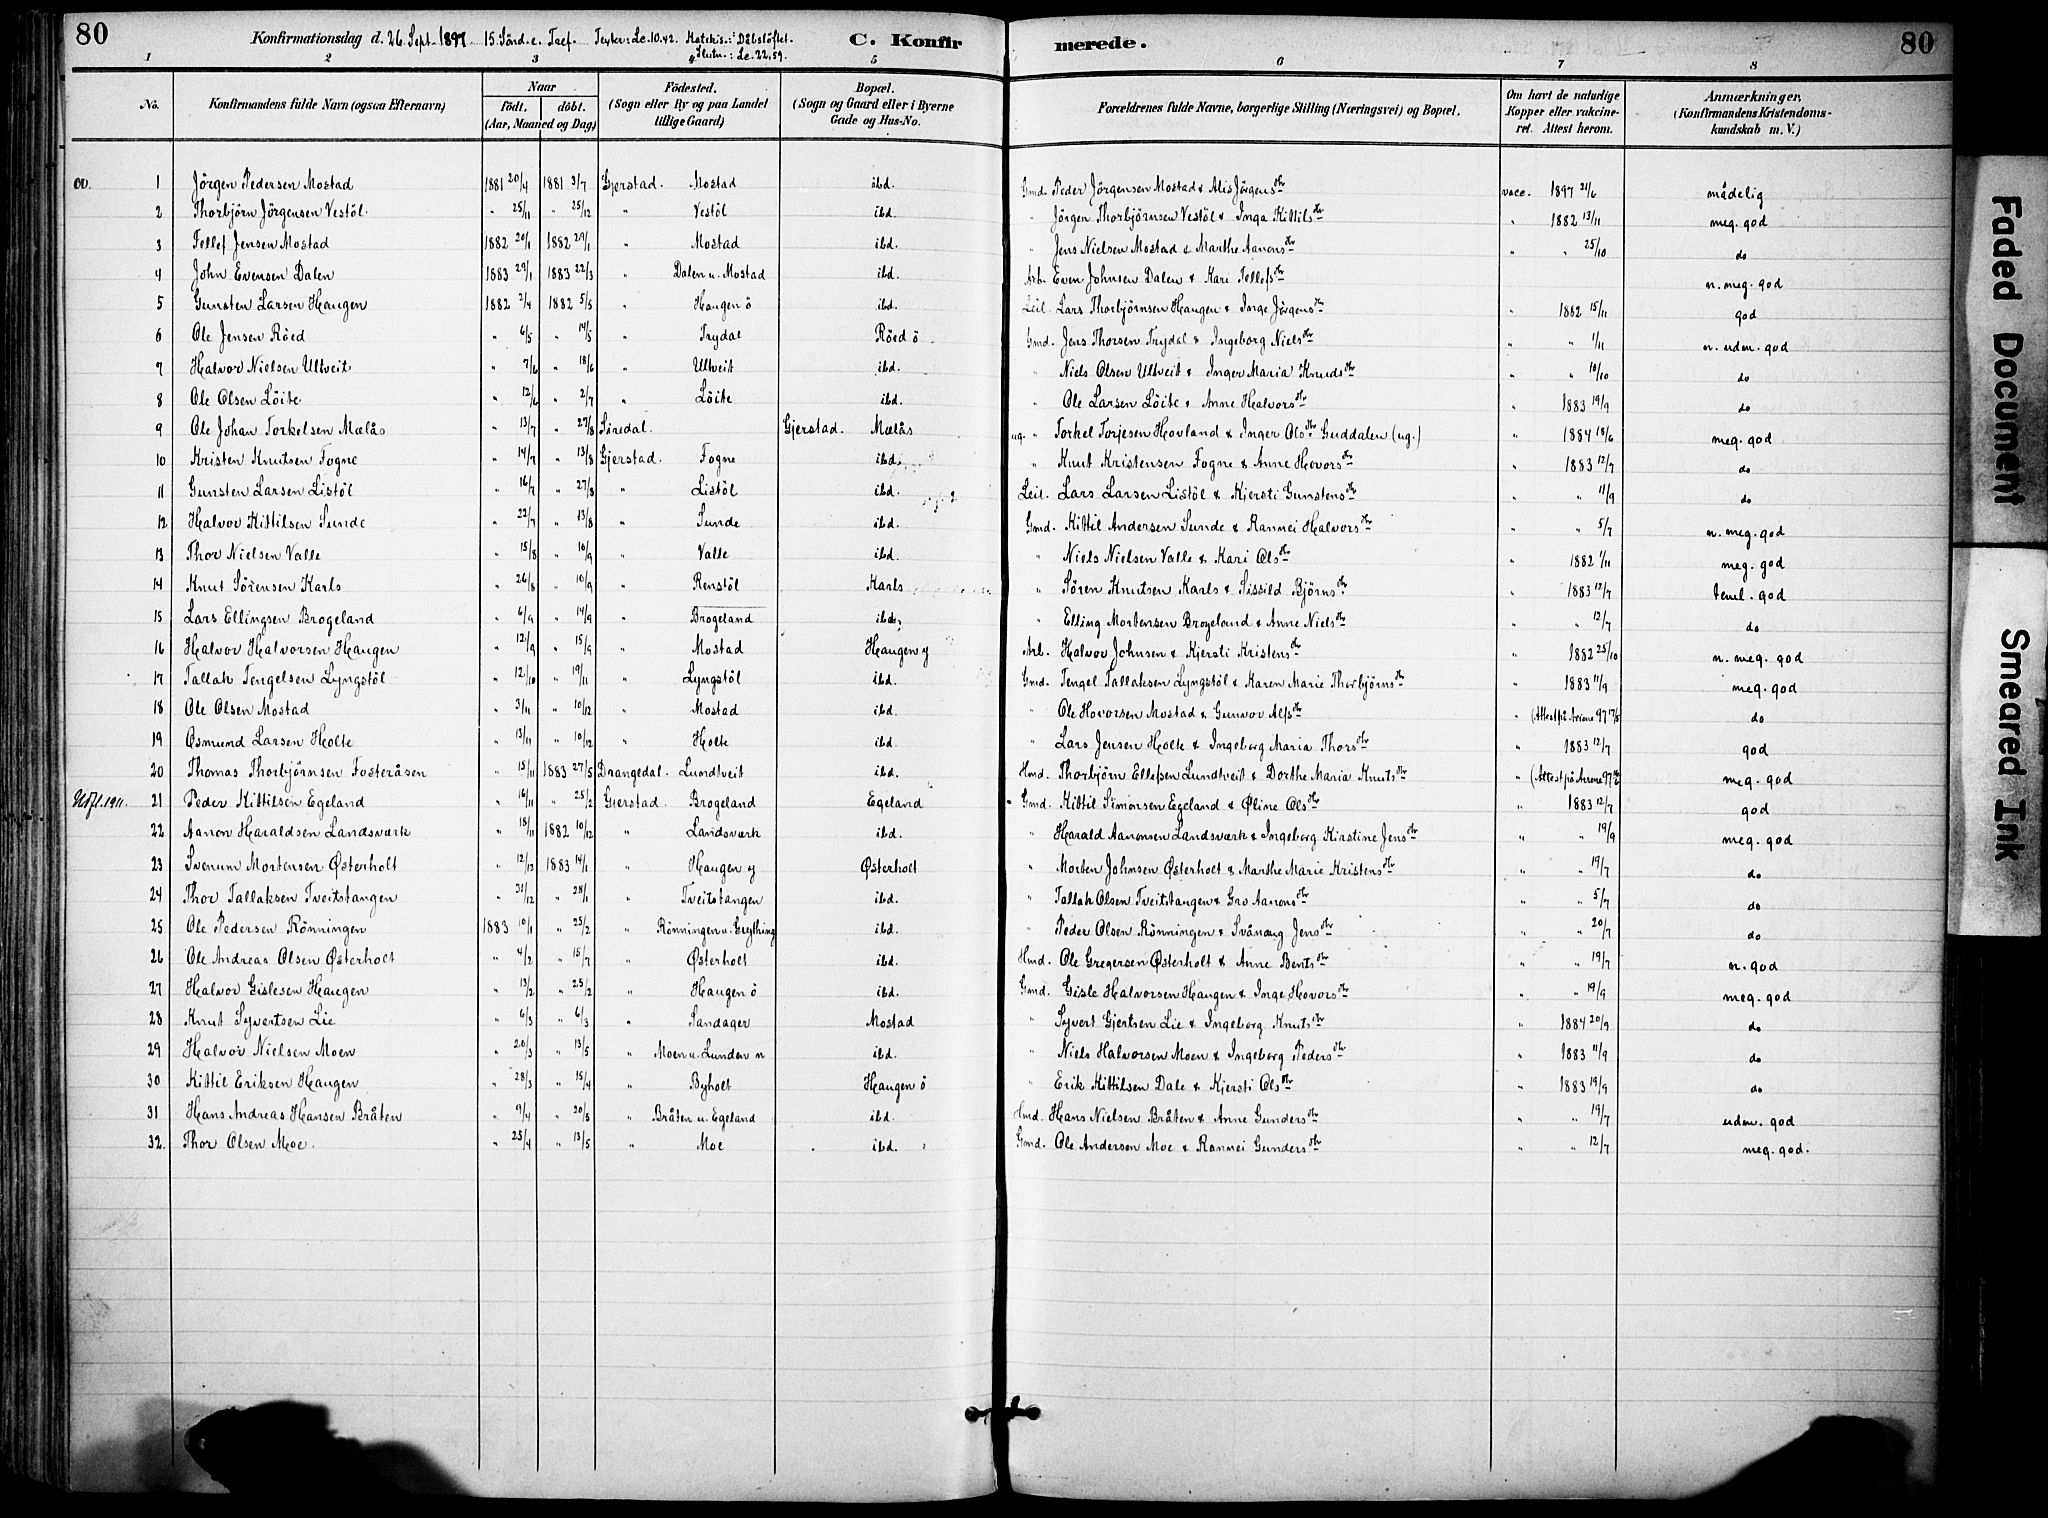 80 Konfirmationsdag d. 26 Sept. 1897 15. Sönd. e. Tref. Texter: Lc. 10.42. Katekis.: Dåbslöftet. C. Konfirmerede. 80
Slutn.: Lc. 22,59.
1 2 3 4 5 6 7 8
No. Konfirmandens fulde Navn (ogsaa Efternavn) Naar födt. döbt. (Aar, Maaned og Dag) Födested. (Sogn eller By og paa Landet tillige Gaard) Bopæl. (Sogn og Gaard eller i Byerne Gade og Hus-No. Forældrenes fulde Navne, borgerlige Stilling (Næringsvei) og Bopæl. Om havt de naturlige Kopper eller vakcineret. Attest herom. Anmærkninger, (Konfirmandens Kristendomskundskab m. V.)
ov. 1 Jörgen Pedersen Mostad 1881 20/4 1881 3/7 Gjerstad. Mostad ibd. Gmd. Peder Jörgensen Mostad & Alis Jörgensdtr vacc. 1897 21/6 mådelig
2 Thorbjörn Jörgensen Vestöl. " 25/11 " 25/12 " Vestöl ibd. " Jörgen Thorbjörnsen Vestöl & Inga Kittilsdtr " 1882 13/11 meg. god
3 Tellef Jensen Mostad 1882 20/1 1882 29/1 " Mostad ibd. " Jens Nielsen Mostad & Marthe Aanonsdtr " " 25/10 do
4 John Evensen Dalen 1883 29/1 1883 22/3 " Dalen u. Mostad ibd. Arb. Even Johnsen Dalen & Kari Tellefsdtr n. meg. god
5 Gunsten Larsen Haugen 1882 2/4 1882 5/5 " Haugen ö ibd. Leil. Lars Thorbjörnsen Haugen & Inge Jörgensdtr " 1882 15/11 god
6 Ole Jensen Röed " 6/5 " 14/5 " Trydal Röed ö Gmd. Jens Thorsen Trydal & Ingeborg Nielsdtr " " 1/11 n. uden. god
7 Halvor Nielsen Ultveit " 7/6 " 18/6 " Ultveit ibd. " Niels Olsen Ultveit & Inger Maria Knudsdtr " " 10/10 do
8 Ole Olsen Löite " 12/6 " 2/7 " Löite ibd. " Ole Larsen Löite & Anne Halvorsdtr " 1883 19/9 do
9 Ole Johan Torkelsen Mælås " 13/7 " 27/8 Siredal. Gjerstad. Mælås ug. " Torkel Torjesen Hovland & Inger Olsdtr Guddalen (ug.) " 1884 18/6 meg. god
10 Kristen Knutsen Fogne " 14/7 " 13/8 Gjerstad. Fogne ibd. " Knut Kristensen Fogne & Anne Hovorsdtr " 1883 12/7 do
11 Gunsten Larsen Listöl " 16/7 " 27/8 " Listöl ibd. Leil. Lars Larsen Listöl & Kjersti Gunstensdtr " " 11/9 do
12 Halvor Kittilsen Sunde " 22/7 " 13/8 " Sunde ibd. Gmd. Kittil Andersen Sunde & Rannei Halvorsdtr " " 5/7 n. meg. god
13 Thor Nielsen Valle " 15/8 " 16/9 " Valle ibd. " Niels Nielsen Valle & Kari Olsdtr " 1882 1/11 meg. god
14 Knut Sörensen Karls " 26/8 " 10/9 " Renstöl Karls " Sören Knutsen Karls & Sissild Björnsdtr " 1883 12/7 teml. god
15 Lars Ellingsen Brogeland " 6/9 " 14/9 " Brogeland ibd. " Elling Mortensen Brogeland & Anne Nielsdtr " " 12/7 do
16 Halvor Halvorsen Haugen " 12/9 " 15/9 " Mostad Haugen y Arb. Halvor Johnsen & Kjersti Kristensdtr " 1882 25/10 n. meg. god
17 Tallak Tengelsen Lyngstöl " 12/10 " 19/11 " Lyngstöl ibd. Gmd. Tengel Tallaksen Lyngstöl & Karen Marie Thorbjörnsdtr " 1883 11/9 meg. god
18 Ole Olsen Mostad " 3/11 " 10/12 " Mostad ibd. " Ole Hovorsen Mostad & Gunvor Alfsdtr " (Attest på Arrene 97 17/5 do
19 Osmund Larsen Holte " 13/11 " 10/12 " Holte ibd. " Lars Jensen Holte & Ingeborg Maria Thorsdtr " 1883 12/7 god
20 Thomas Thorbjörnsen Fosteråsen " 15/11 1883 27/5 Drangedal. Lundtveit ibd. Hmd. Thorbjörn Ellefsen Lundtveit & Dorthe Maria Knutsdtr " (Attest på Arrene 97 meg. god
Udfl. 1911. 21 Peder Kittilsen Egeland " 16/11 " 25/2 Gjerstad. Brogeland Egeland " Gmd. Kittil Simonsen Egeland & Öline Olsdtr " 1883 12/7 god
22 Aanon Haraldsen Landsværk " 18/11 1882 10/12 " Landsværk ibd. " Harald Aanonsen Landsværk & Ingeborg Kirstine Jensdtr " " 19/9 meg. god
23 Svenum Mortensen Østerholt " 12/12 1883 14/1 " Haugen y Østerholt " Morten Johnsen Østerholt & Marthe Marie Kristensdtr " " 19/7 do
24 Thor Tallaksen Tveitstangen " 31/12 " 28/1 " Tveitstangen ibd. " Tallak Olsen Tveitstangen & Gro Aanonsdtr " " 5/7 do
25 Ole Pedersen Rönningen 1883 10/1 " 25/2 " Rönningen u. Gryting ibd. " Peder Olsen Rönningen & Svånaug Jensdtr " " 20/7 do
26 Ole Andreas Olsen Østerholt " 4/2 " 15/7 " Østerholt ibd. Hmd. Ole Gregersen Østerholt & Anne Bentsdtr " " 19/7 n. god
27 Halvor Gislesen Haugen " 13/2 " 25/2 " Haugen ö ibd. Gmd. Gisle Halvorsen Haugen & Inge Hovorsdtr " " 19/9 meg. god
28 Knut Syvertsen Lie " 6/3 " 6/3 " Sandager Mostad " Syvert Gjertsen Lie & Ingeborg Knutsdtr " 1884 20/9 do
29 Halvor Nielsen Moen " 20/3 " 13/5 " Moen u. Lunden n ibd. " Niels Halvorsen Moen & Ingeborg Pedersdtr " 1883 11/9 do
30 Kittil Eriksen Haugen " 28/3 " 15/4 " Byholt Haugen ö " Erik Kittilsen Dale & Kjersti Olsdtr " 1883 19/9 do
31 Hans Andreas Hansen Bråten " 9/4 " 20/5 " Bråten u. Egeland ibd. Hmd. Hans Nielsen Bråten & Anne Gundersdtr " " 19/7 uden. god
32. Thor Olsen Moe. " 25/4 " 13/5 " Moe ibd. Gmd. Ole Andersen Moe & Rannei Gundersdtr " " 12/7 meg. god.
Faded Document
Smeared Ink